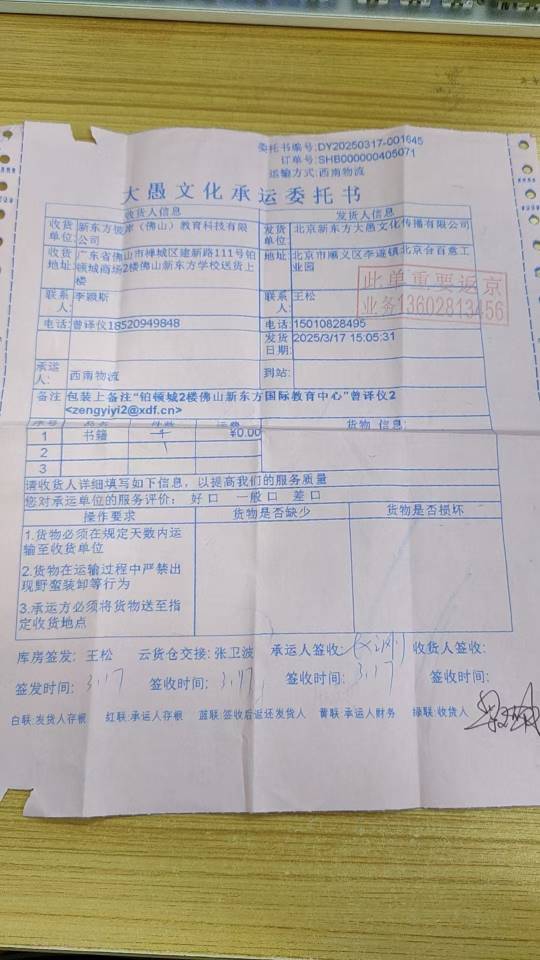 委托书编号:DY20250317-001645
订单号:SHB000000405071
运输方式:西南物流
大愚文化承运委托书
收货人信息 发货人信息
收货单位: 新东方彼岸（佛山）教育科技有限公司 发货单位: 北京新东方大愚文化传播有限公司
收货地址: 广东省佛山市禅城区建新路111号铂顿城商场2楼佛山新东方学校送货上楼 地址: 北京市顺义区李遂镇北京台百意工业园
此单重要返京
业务13602813456
联系人: 李颖斯 联系人: 王松
电话: 曾译仪18520949848 电话: 15010828495
发货日期: 2025/3/17 15:05:31
承运人: 西南物流 到站:
备注 包装上备注“铂顿城2楼佛山新东方国际教育中心”曾译仪2
<zengyiyi2@xdf.cn>
序号 品名 件数 运费 货物 信息:
1 书籍 ¥0.00
2
3
请收货人详细填写如下信息，以提高我们的服务质量
您对承运单位的服务评价： 好口 一般口 差口
操作要求 货物是否缺少 货物是否损坏
1.货物必须在规定天数内运
输至收货单位
2.货物在运输过程中严禁出
现野蛮装卸等行为
3.承运方必须将货物送至指
定收货地点
库房签发: 王松 云货仓交接: 张卫波 承运人签收: 收货人签收:
签发时间: 3.17 签收时间: 3.17 签收时间: 3.17 签收时间:
白联:发货人存根 红联:承运人存根 蓝联:签收后返还发货人 黄联:承运人财务 绿联:收货人